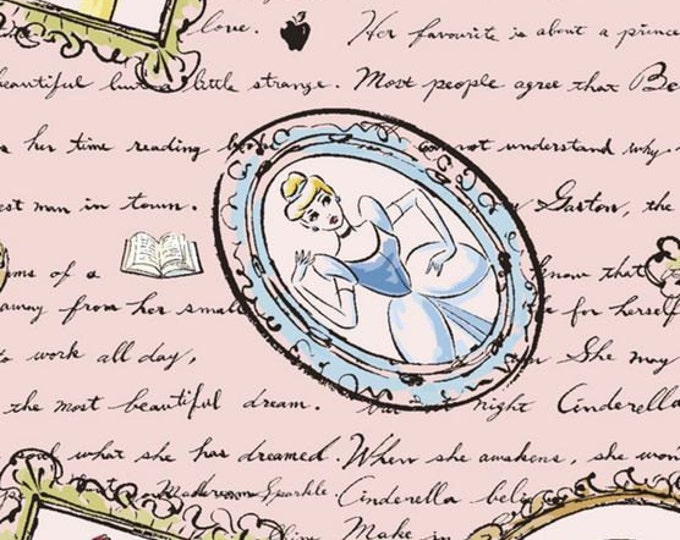 love. Her favourite is about a prince
beautiful but a little strange. Most people agree that Be
her time reading not understand why
est man in town. Gaston, the
ms of a know that
away from her small for herself
to work all day, She may
the most beautiful dream. but night Cinderella
soul what she has dreamed. When she awakens, she won
Sparkle. Cinderella beli
Make in